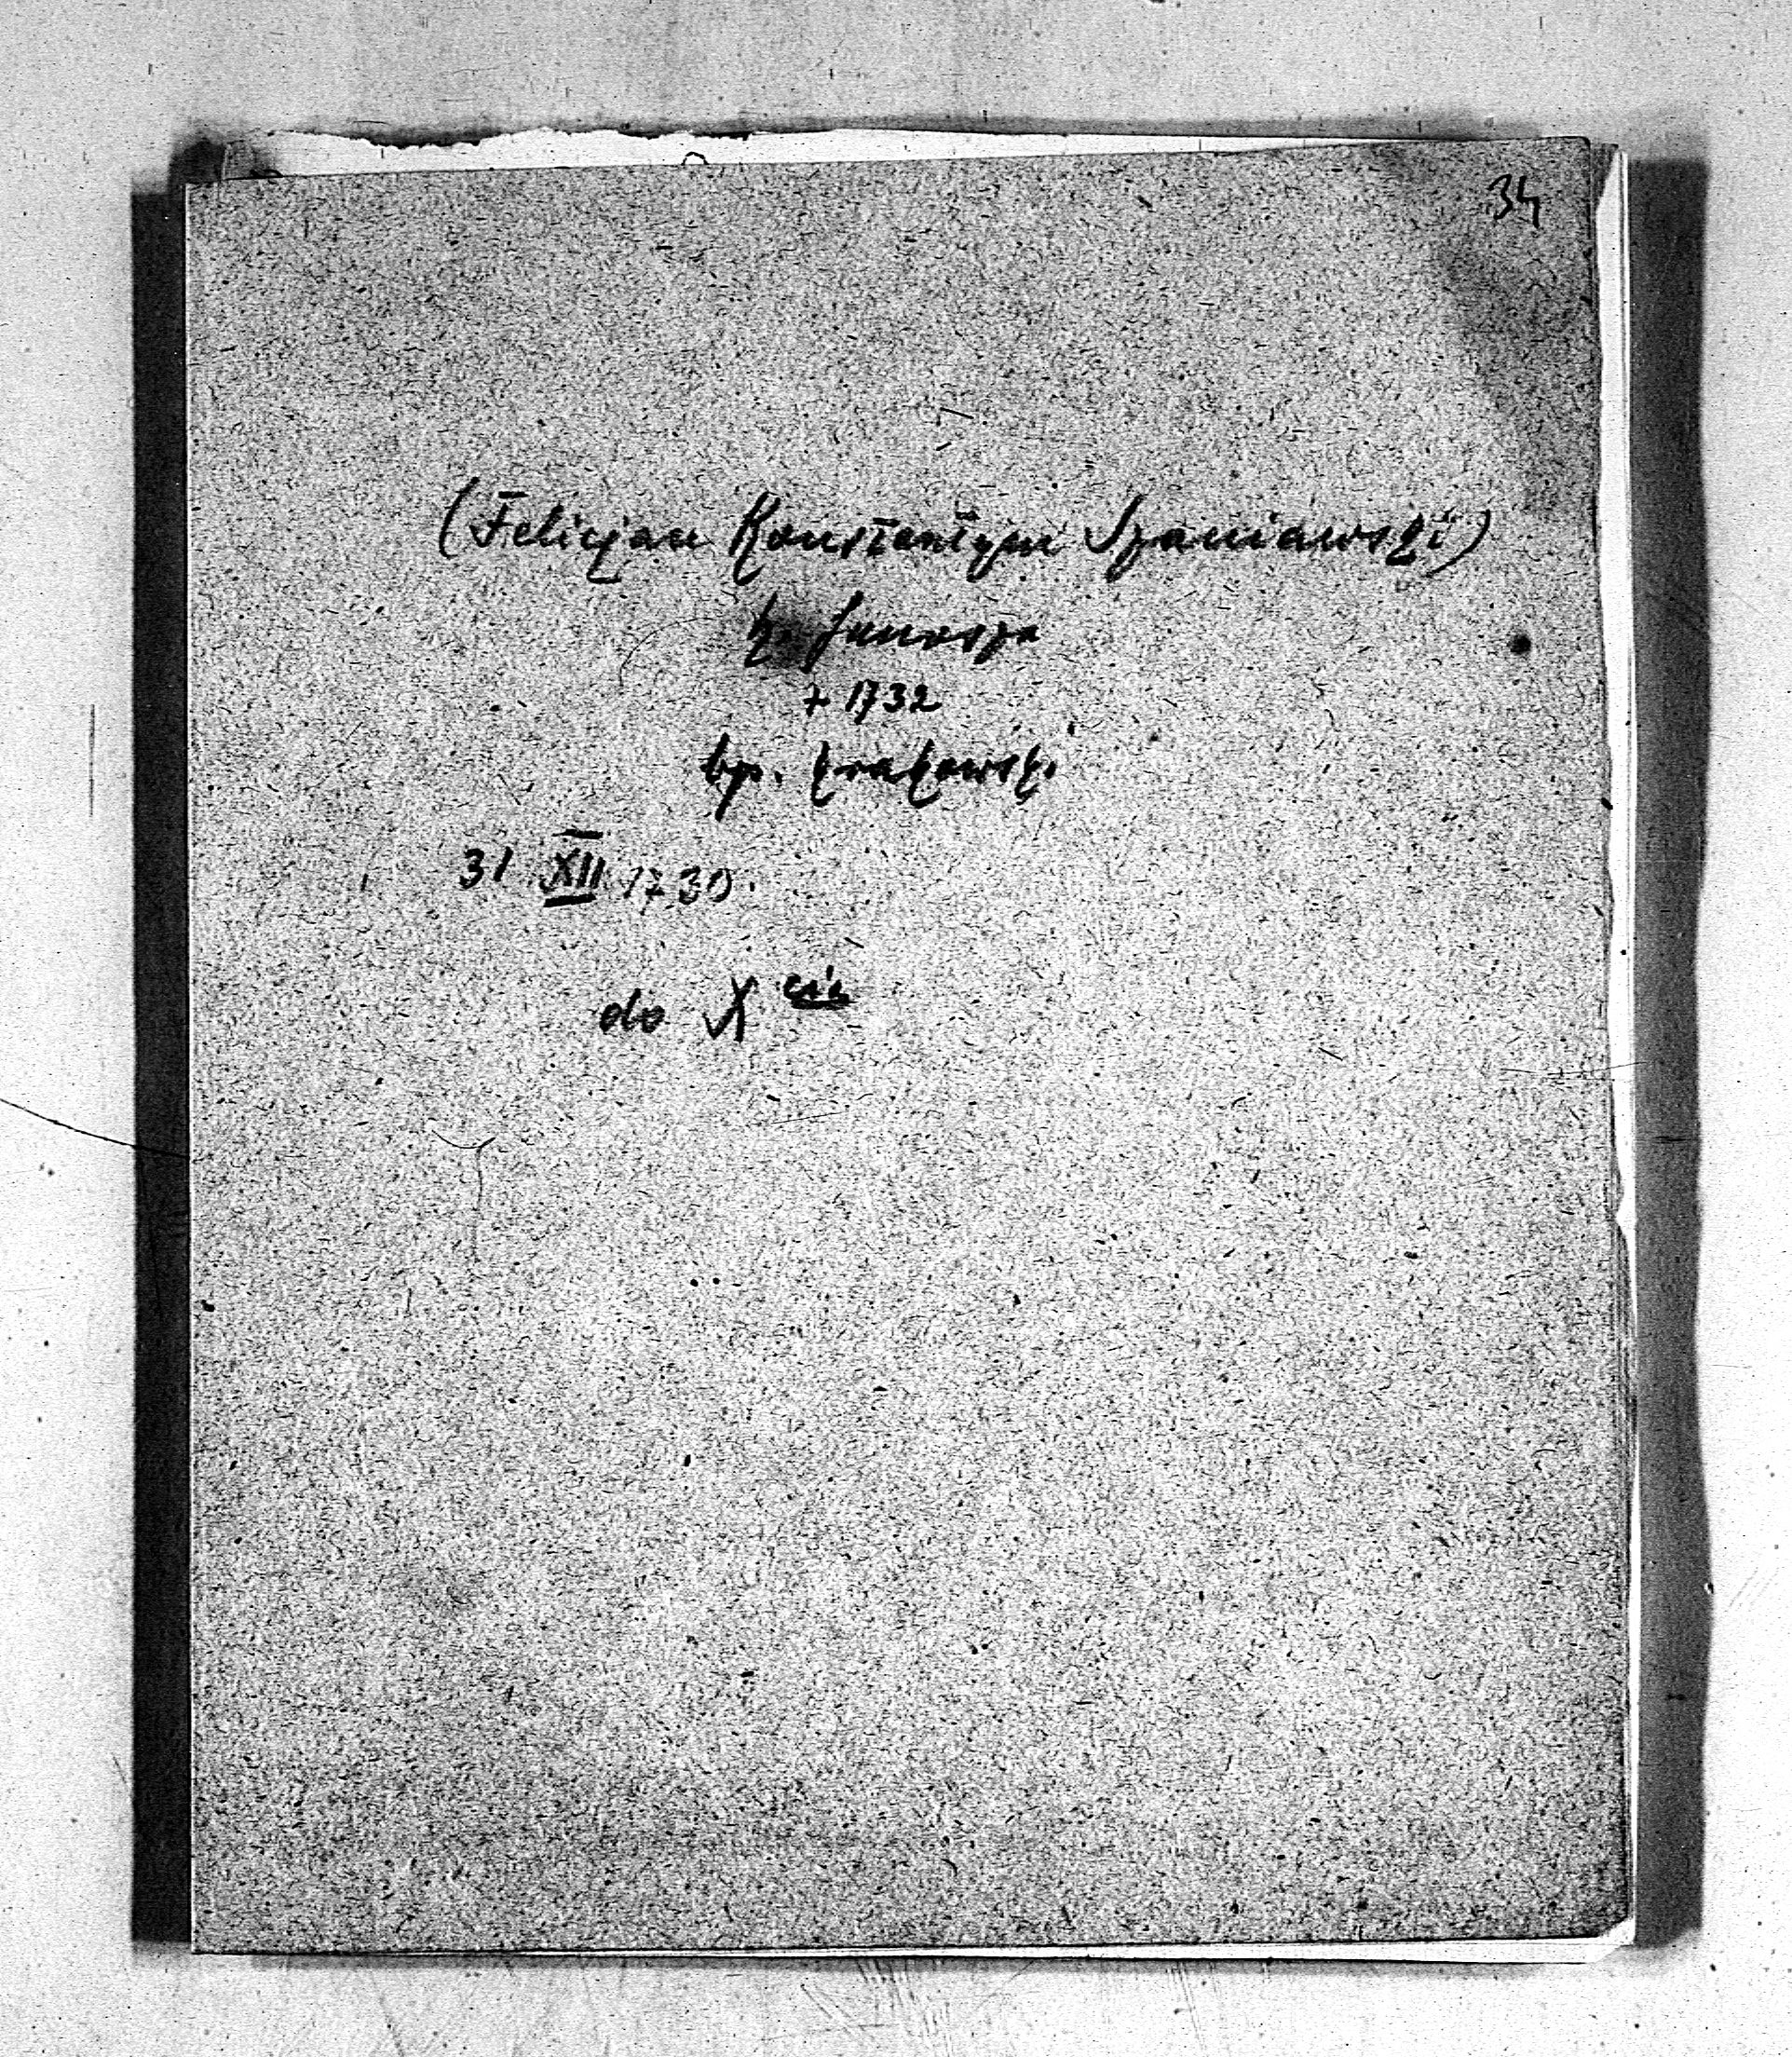 34
(Felicjan Konstantyn Szaniawski)
h. Junosza
+ 1732
bp. krakowski
31 XII 1730.
do X cia